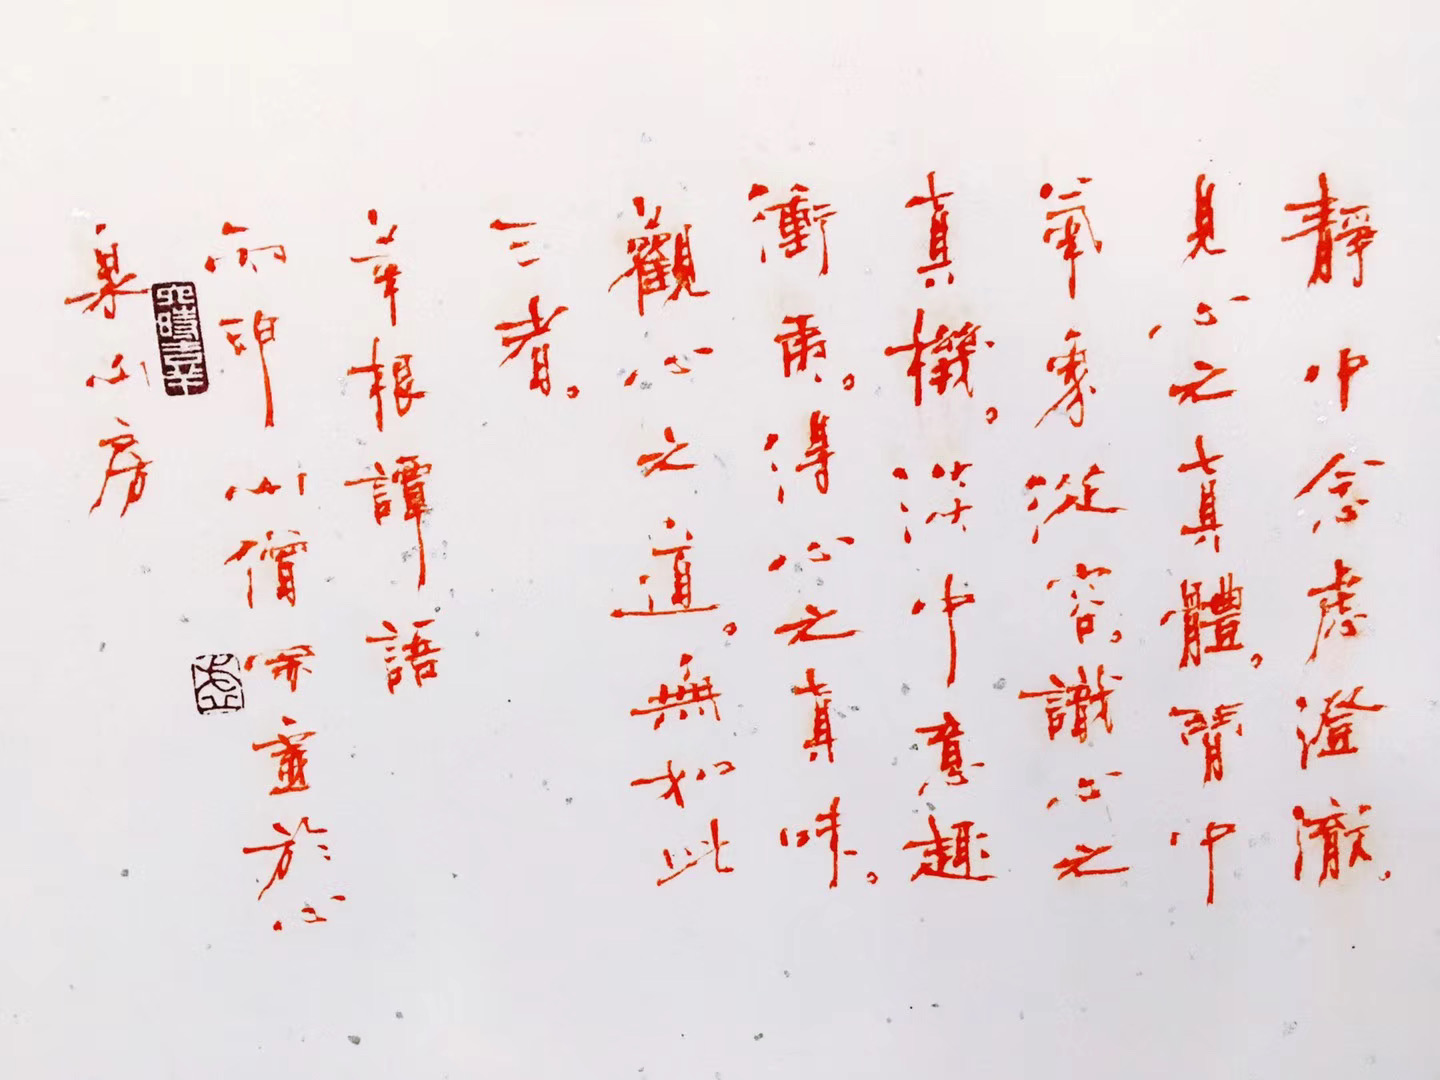 靜中念慮澄澈。
見心之真體。閒中
氣象從容。識心之
真機。淡中意趣
衝夷。得心之真味。
觀心之道。無如此
三者。
菜根譚語
山僧 於心
泉山房
六時吉羊